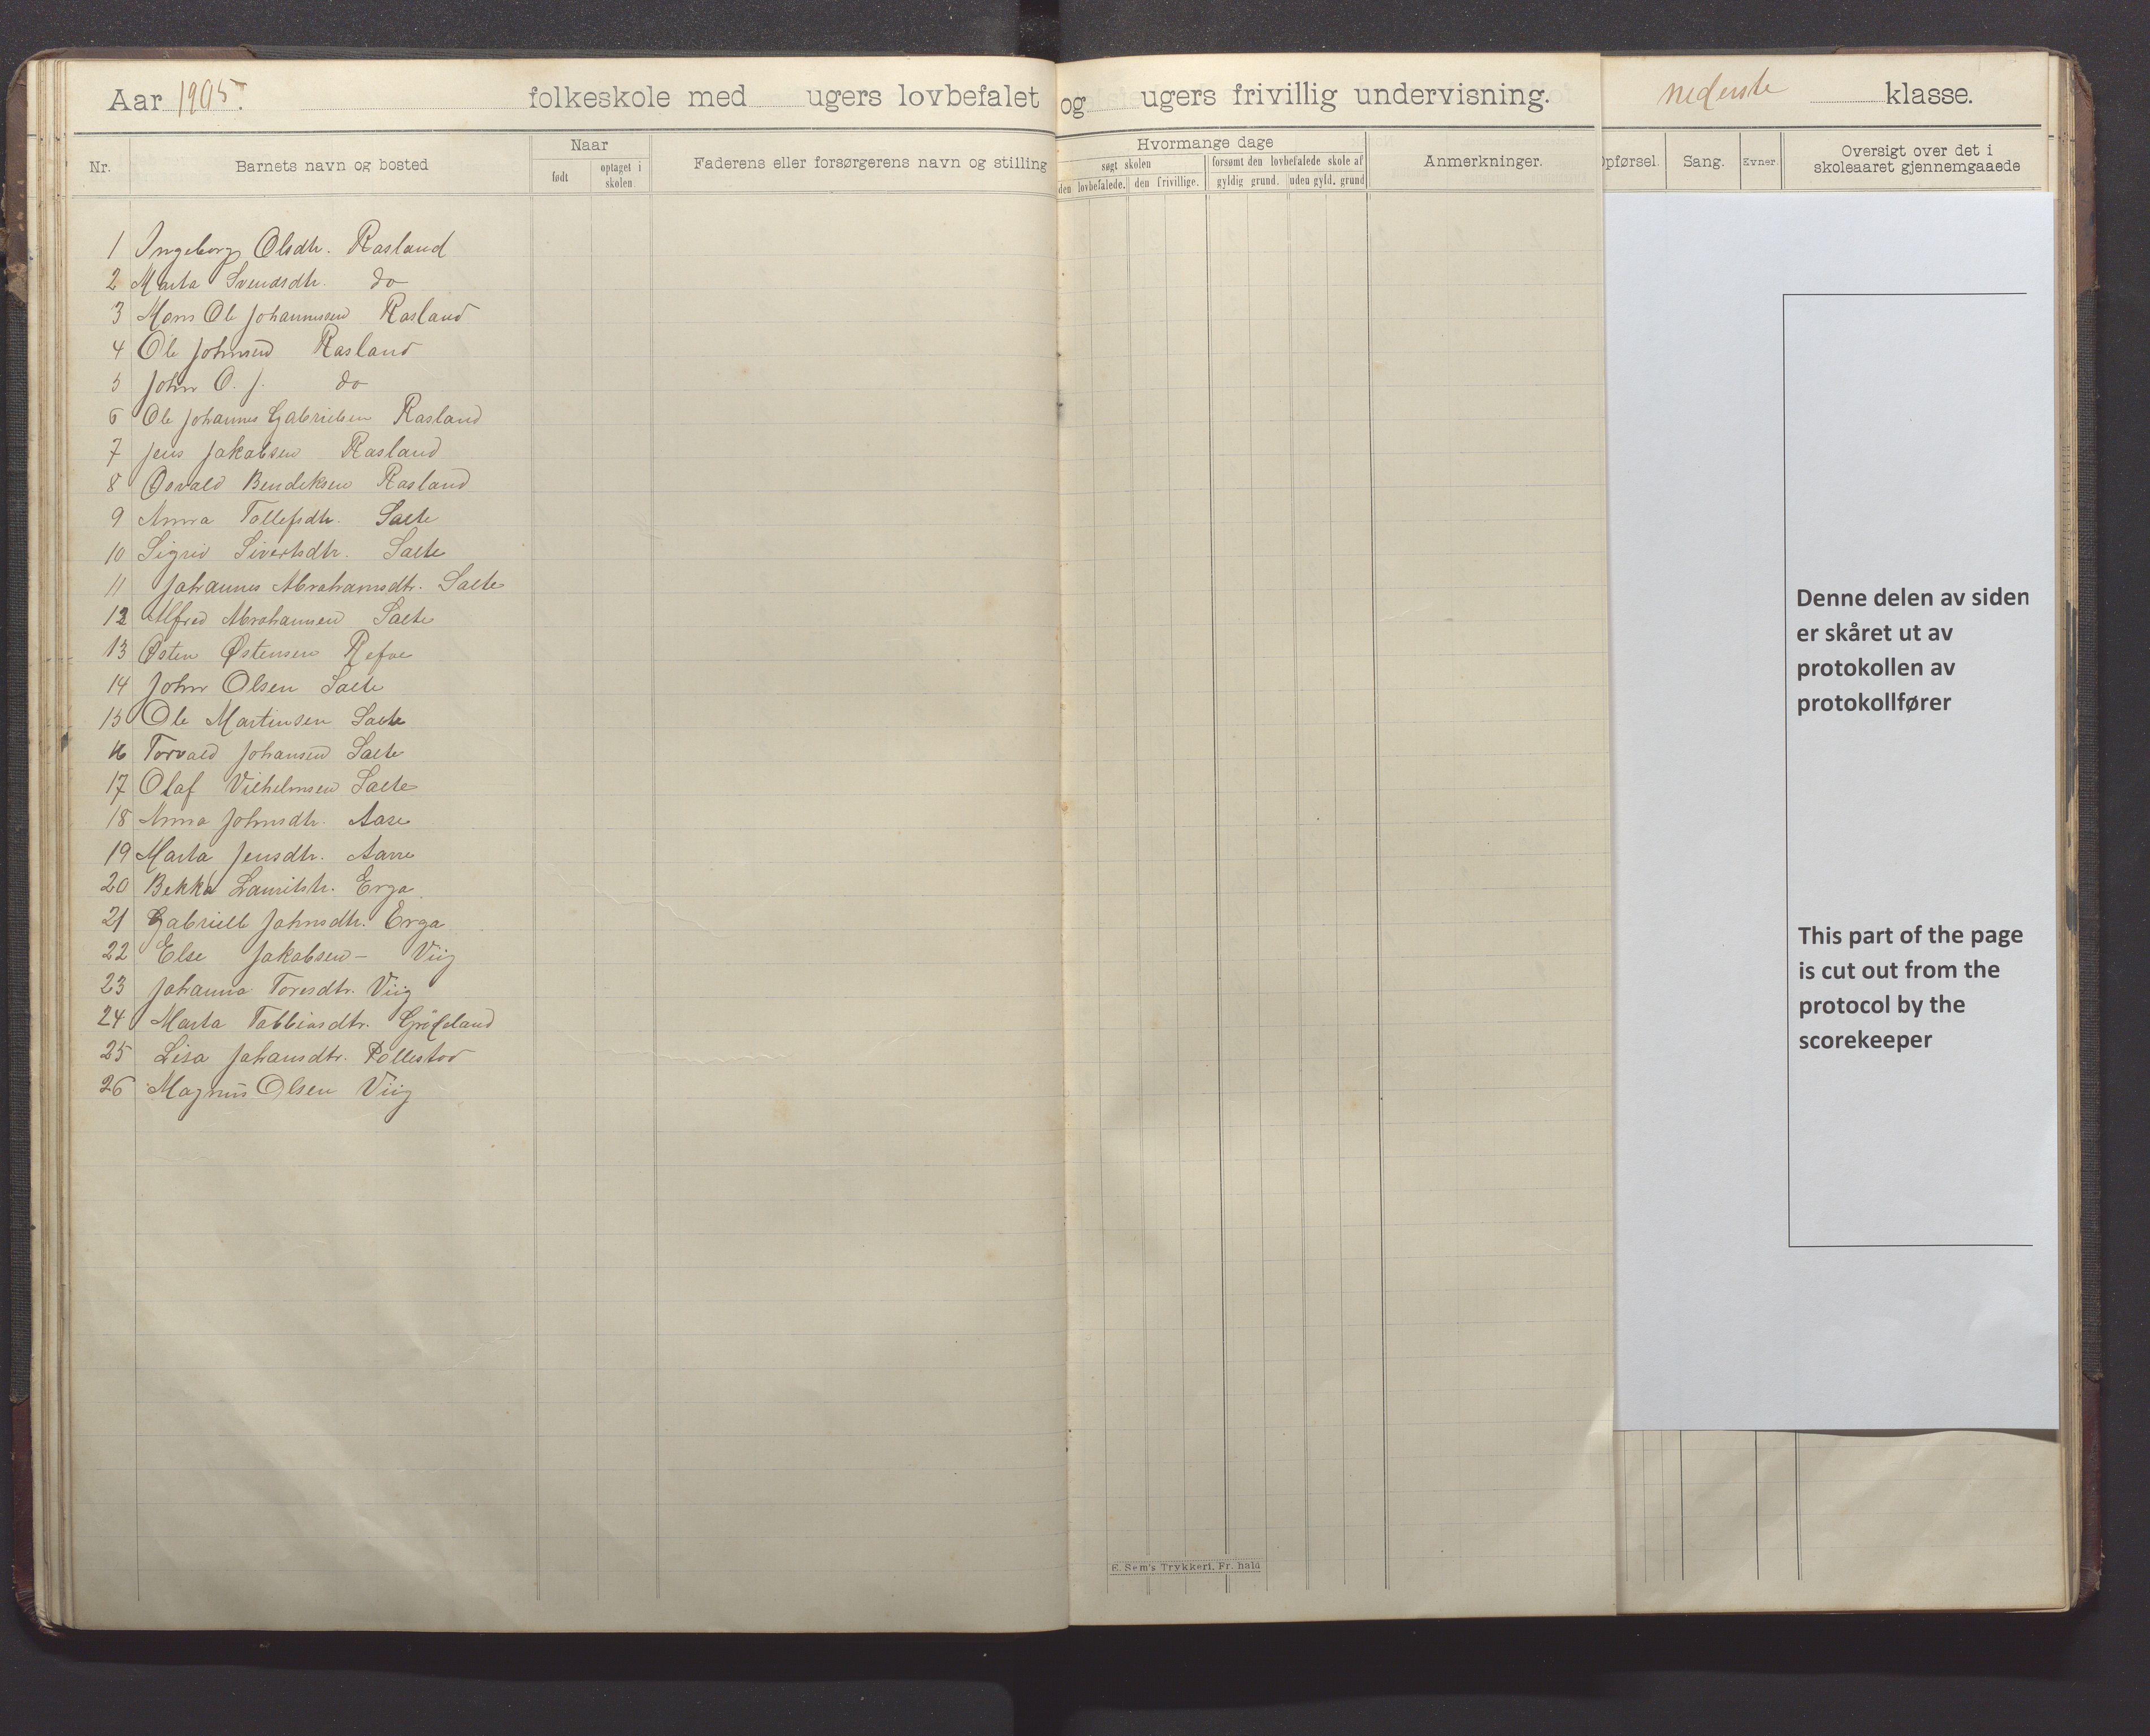 Aar 1905. folkeskole med ugers lovbefalet og ugers frivillig undervisning. nederste klasse.
Nr. Barnets navn og bosted Naar født optaget i skolen Faderens eller forsørgerens navn og stilling Hvormange dage søgt skolen den lovbefalede. den frivillige. forsømt den lovbefalede skole af gyldig grund. uden gyld. grund Anmerkninger. Opførsel. Sang. Evner. Oversigt over det i skoleaaret gjennemgaaede
1 Ingeborg Olsdtr. Rasland
2 Marta Svendsdtr. do
3 Mons Ole Johannessen Rasland
4 Ole Johnsen Rasland
5 John O. J. do
6 Ole Johannes Gabrielsen Rasland
7 Jens Jakobsen Rasland
8 Osvald Bendiksen Rasland
9 Anna Tollefsdtr. Salte
10 Sigrid Sivertsdtr. Salte
11 Johannes Abrahamsdtr. Salte
12 Alfred Abrahamsen Salte
13 Østen Østensen Refve
14 John Olsen Salte
15 Ole Martinsen Salte
16 Torvald Johansen Salte
17 Olaf Vilhelmsen Salte
18 Anna Johnsdtr. Aare
19 Marta Jensdtr. Aarre
20 Bekka Lauritsdtr. Erga
21 Gabrielle Johnsdtr. Erga
22 Else Jakobsen - Viig
23 Johanna Toresdtr. Viig
24 Marta Tobbiasdtr. Grödeland
25 Lisa Johansdtr. Pollestad
26 Magnus Olsen Viig
Denne delen av siden
er skåret ut av
protokollen av
protokollfører
This part of the page
is cut out from the
protocol by the
scorekeeper
E. Sem's Trykkeri, Fr. hald